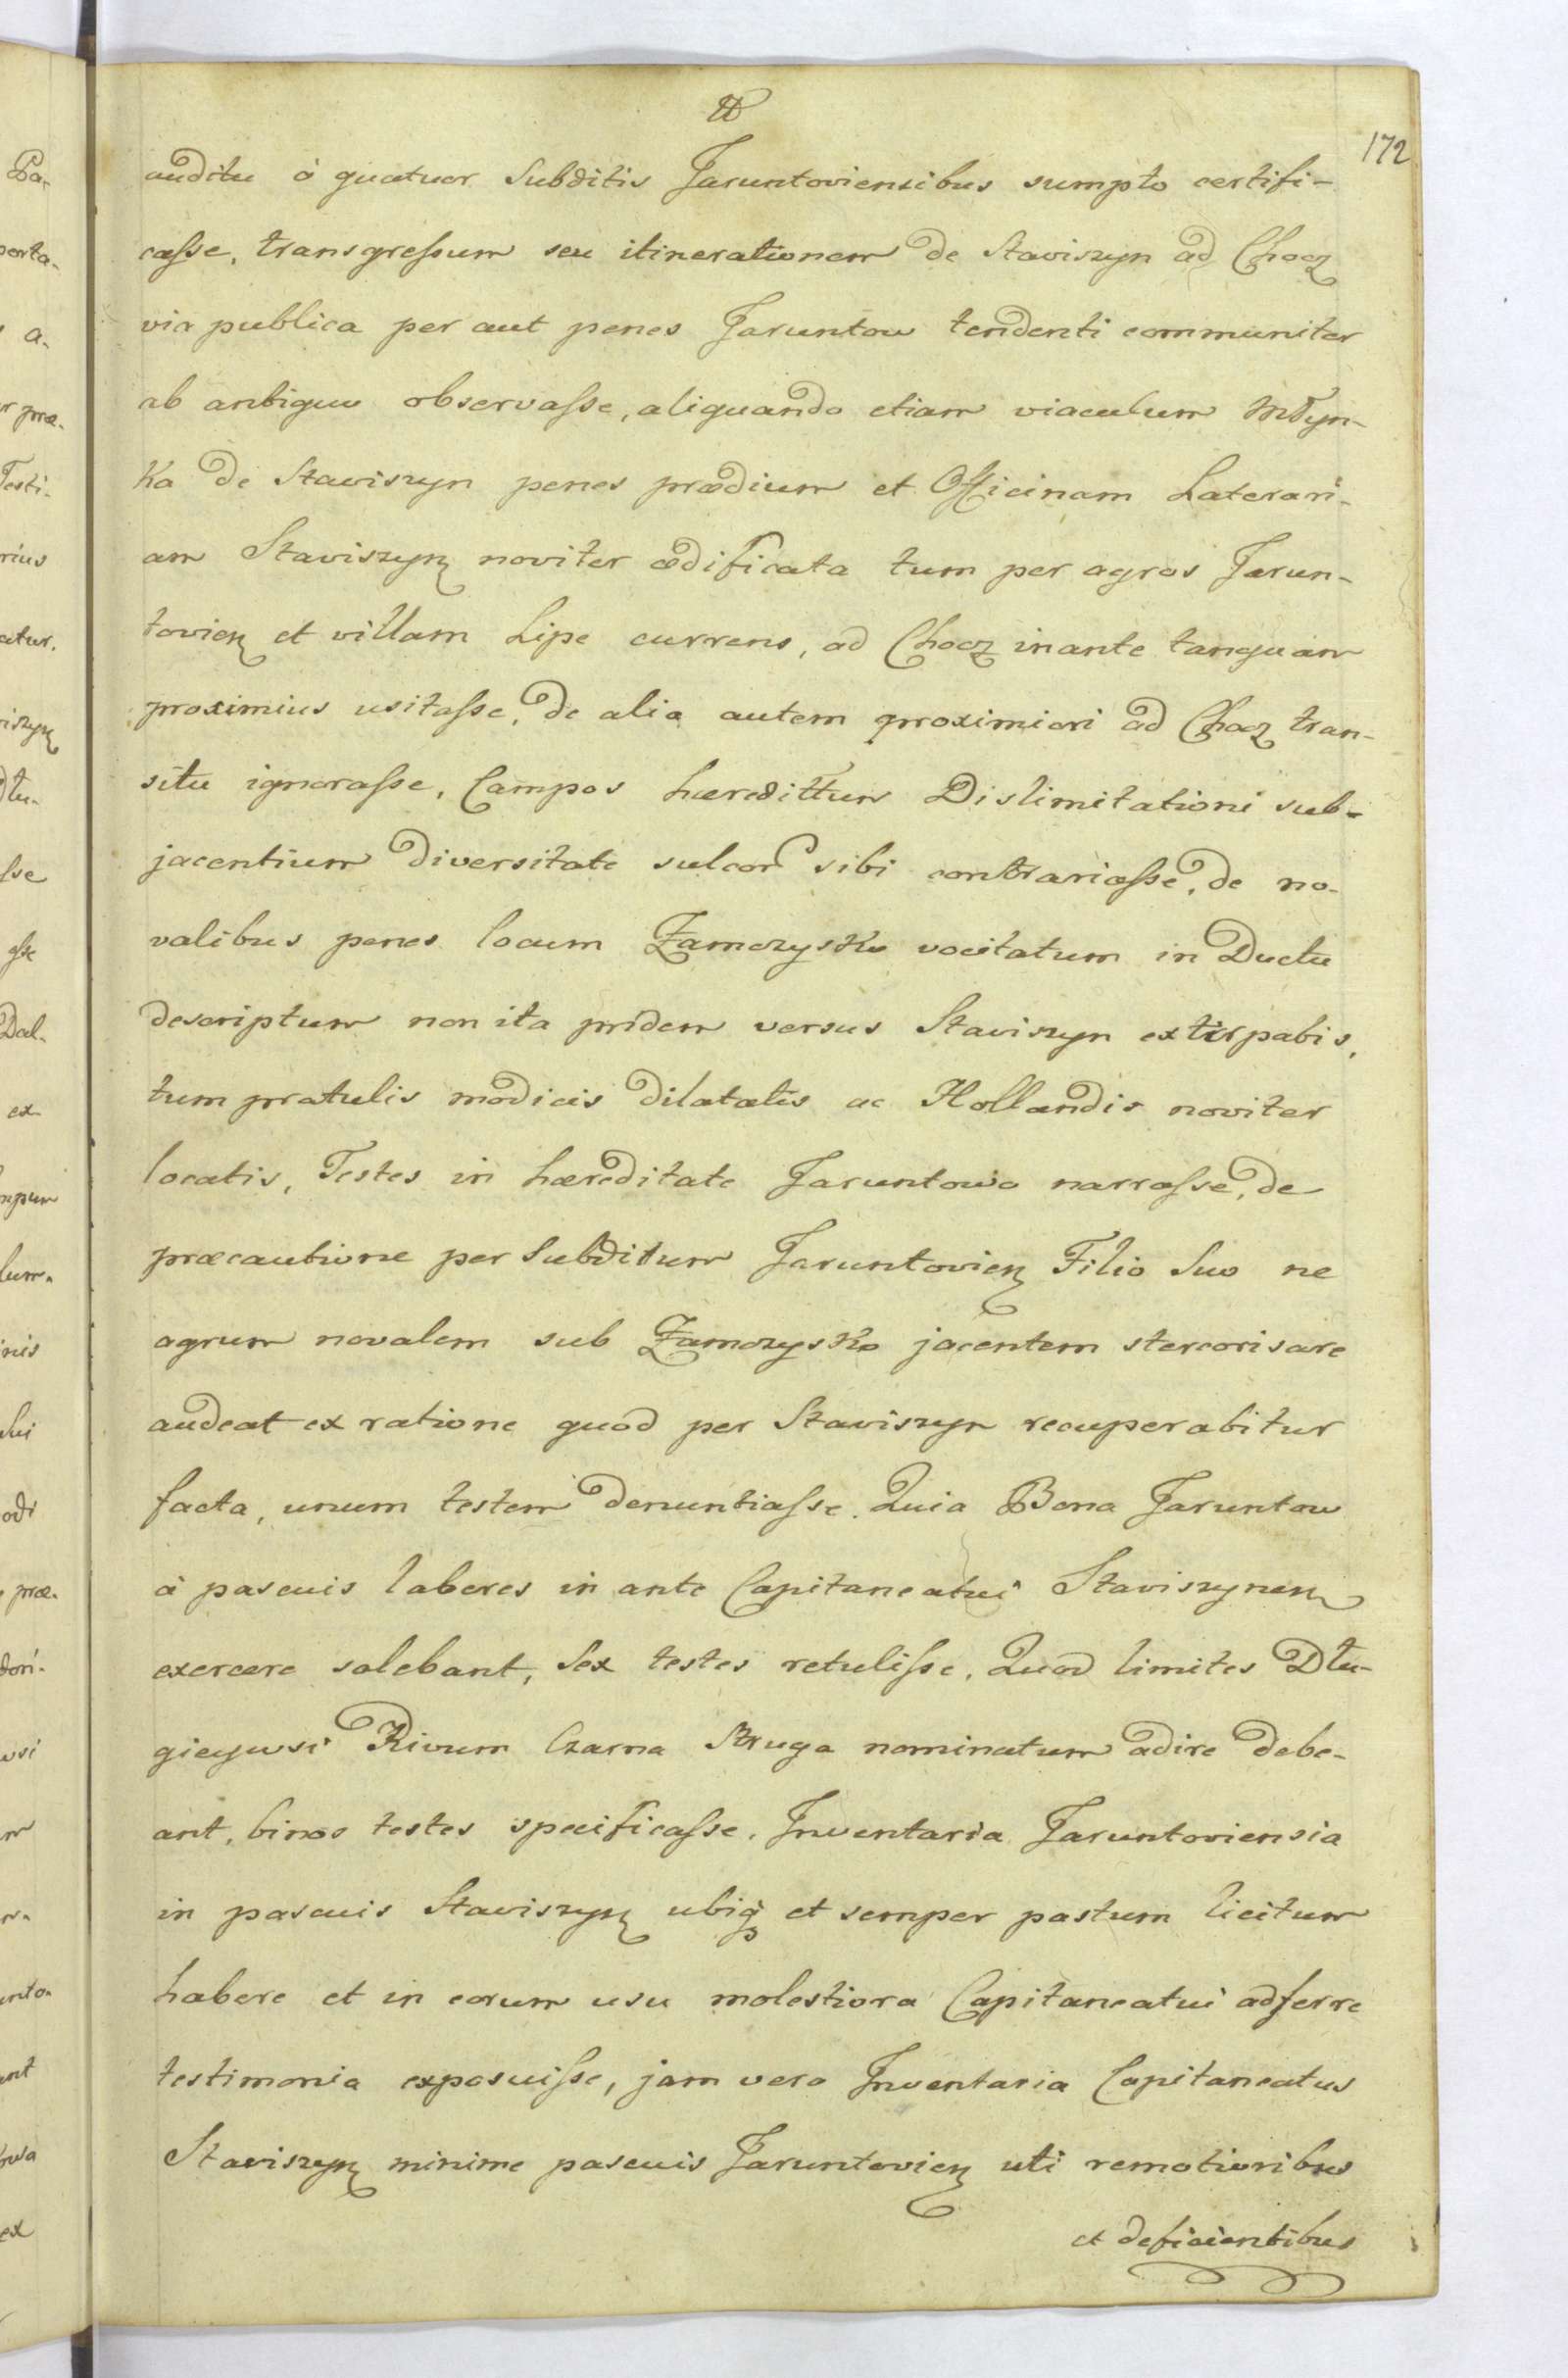 172
auditu à quatuor Subditis Jaruntoviensibus sumpto certifi-
casse, transgressum seu itinerationem de Staviszyn ad Chocz
via publica per aut penes Jaruntow tendenti communiter
ab antiquo observasse, aliquando etiam viaculum Młyn-
ka de Staviszyn penes prædium et Officinam Laterari-
am Staviszyn noviter ædificata tum per agros Jarun-
tovien et villam Lipe currens, ad Chocz inante tanquam
proximius usitasse, de alia autem proximiori ad Chocz tran-
situ ignorasse, Campos hæredittum Dislimitationi sub-
jacentium diversitate sulcor sibi contrariasse, de no-
valibus penes locum Zamczysko vocitatum in Ductu
descriptum non ita pridem versus Staviszyn extirpatis,
tum pratulis modicis dilatatis ac Hollandis noviter
locatis, Testes in hæreditate Jaruntowo narrasse, de
præcautione per Subditum Jaruntovien Filio Suo ne
agrum novalem sub Zamczysko jacentem stercorisare
audeat ex ratione quod per Staviszyn recuperabitur
facta, unum testem denuntiasse. Quia Bona Jaruntow
à pascuis labores in ante Capitaneatui Staviszynen
exercere solebant, Sex testes retulisse, Quod limites Dłu-
gieywsi Rivum Czarna Struga nominatum adire debe-
ant, binos testes specificasse. Inventaria Jaruntoviensia
in pascuis Staviszyn ubiq et semper pastum licitum
habere et in eorum usu molestiora Capitaneatui adferre
testimonia exposuisse, jam vero Inventaria Capitaneatus
Staviszyn minime pascuis Jaruntovien uti remotioribus
et deficientibus